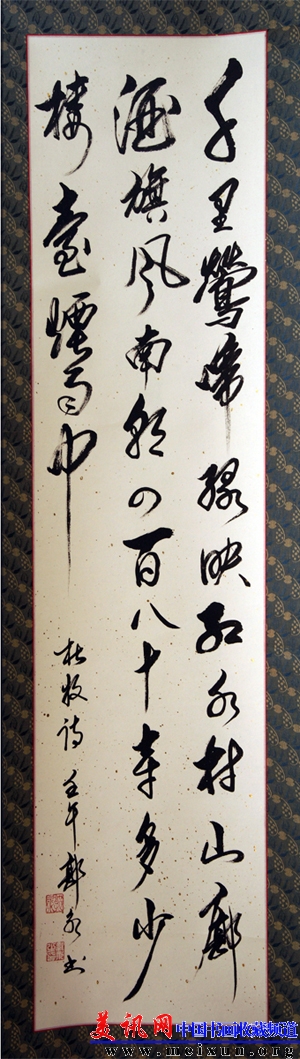 千里鶯啼綠映紅水村山郭
酒旗風南朝四百八十寺多少
樓臺煙雨中
杜牧诗 壬午 鄭泉书
美讯网 中国书画收藏频道
www.meixun.org